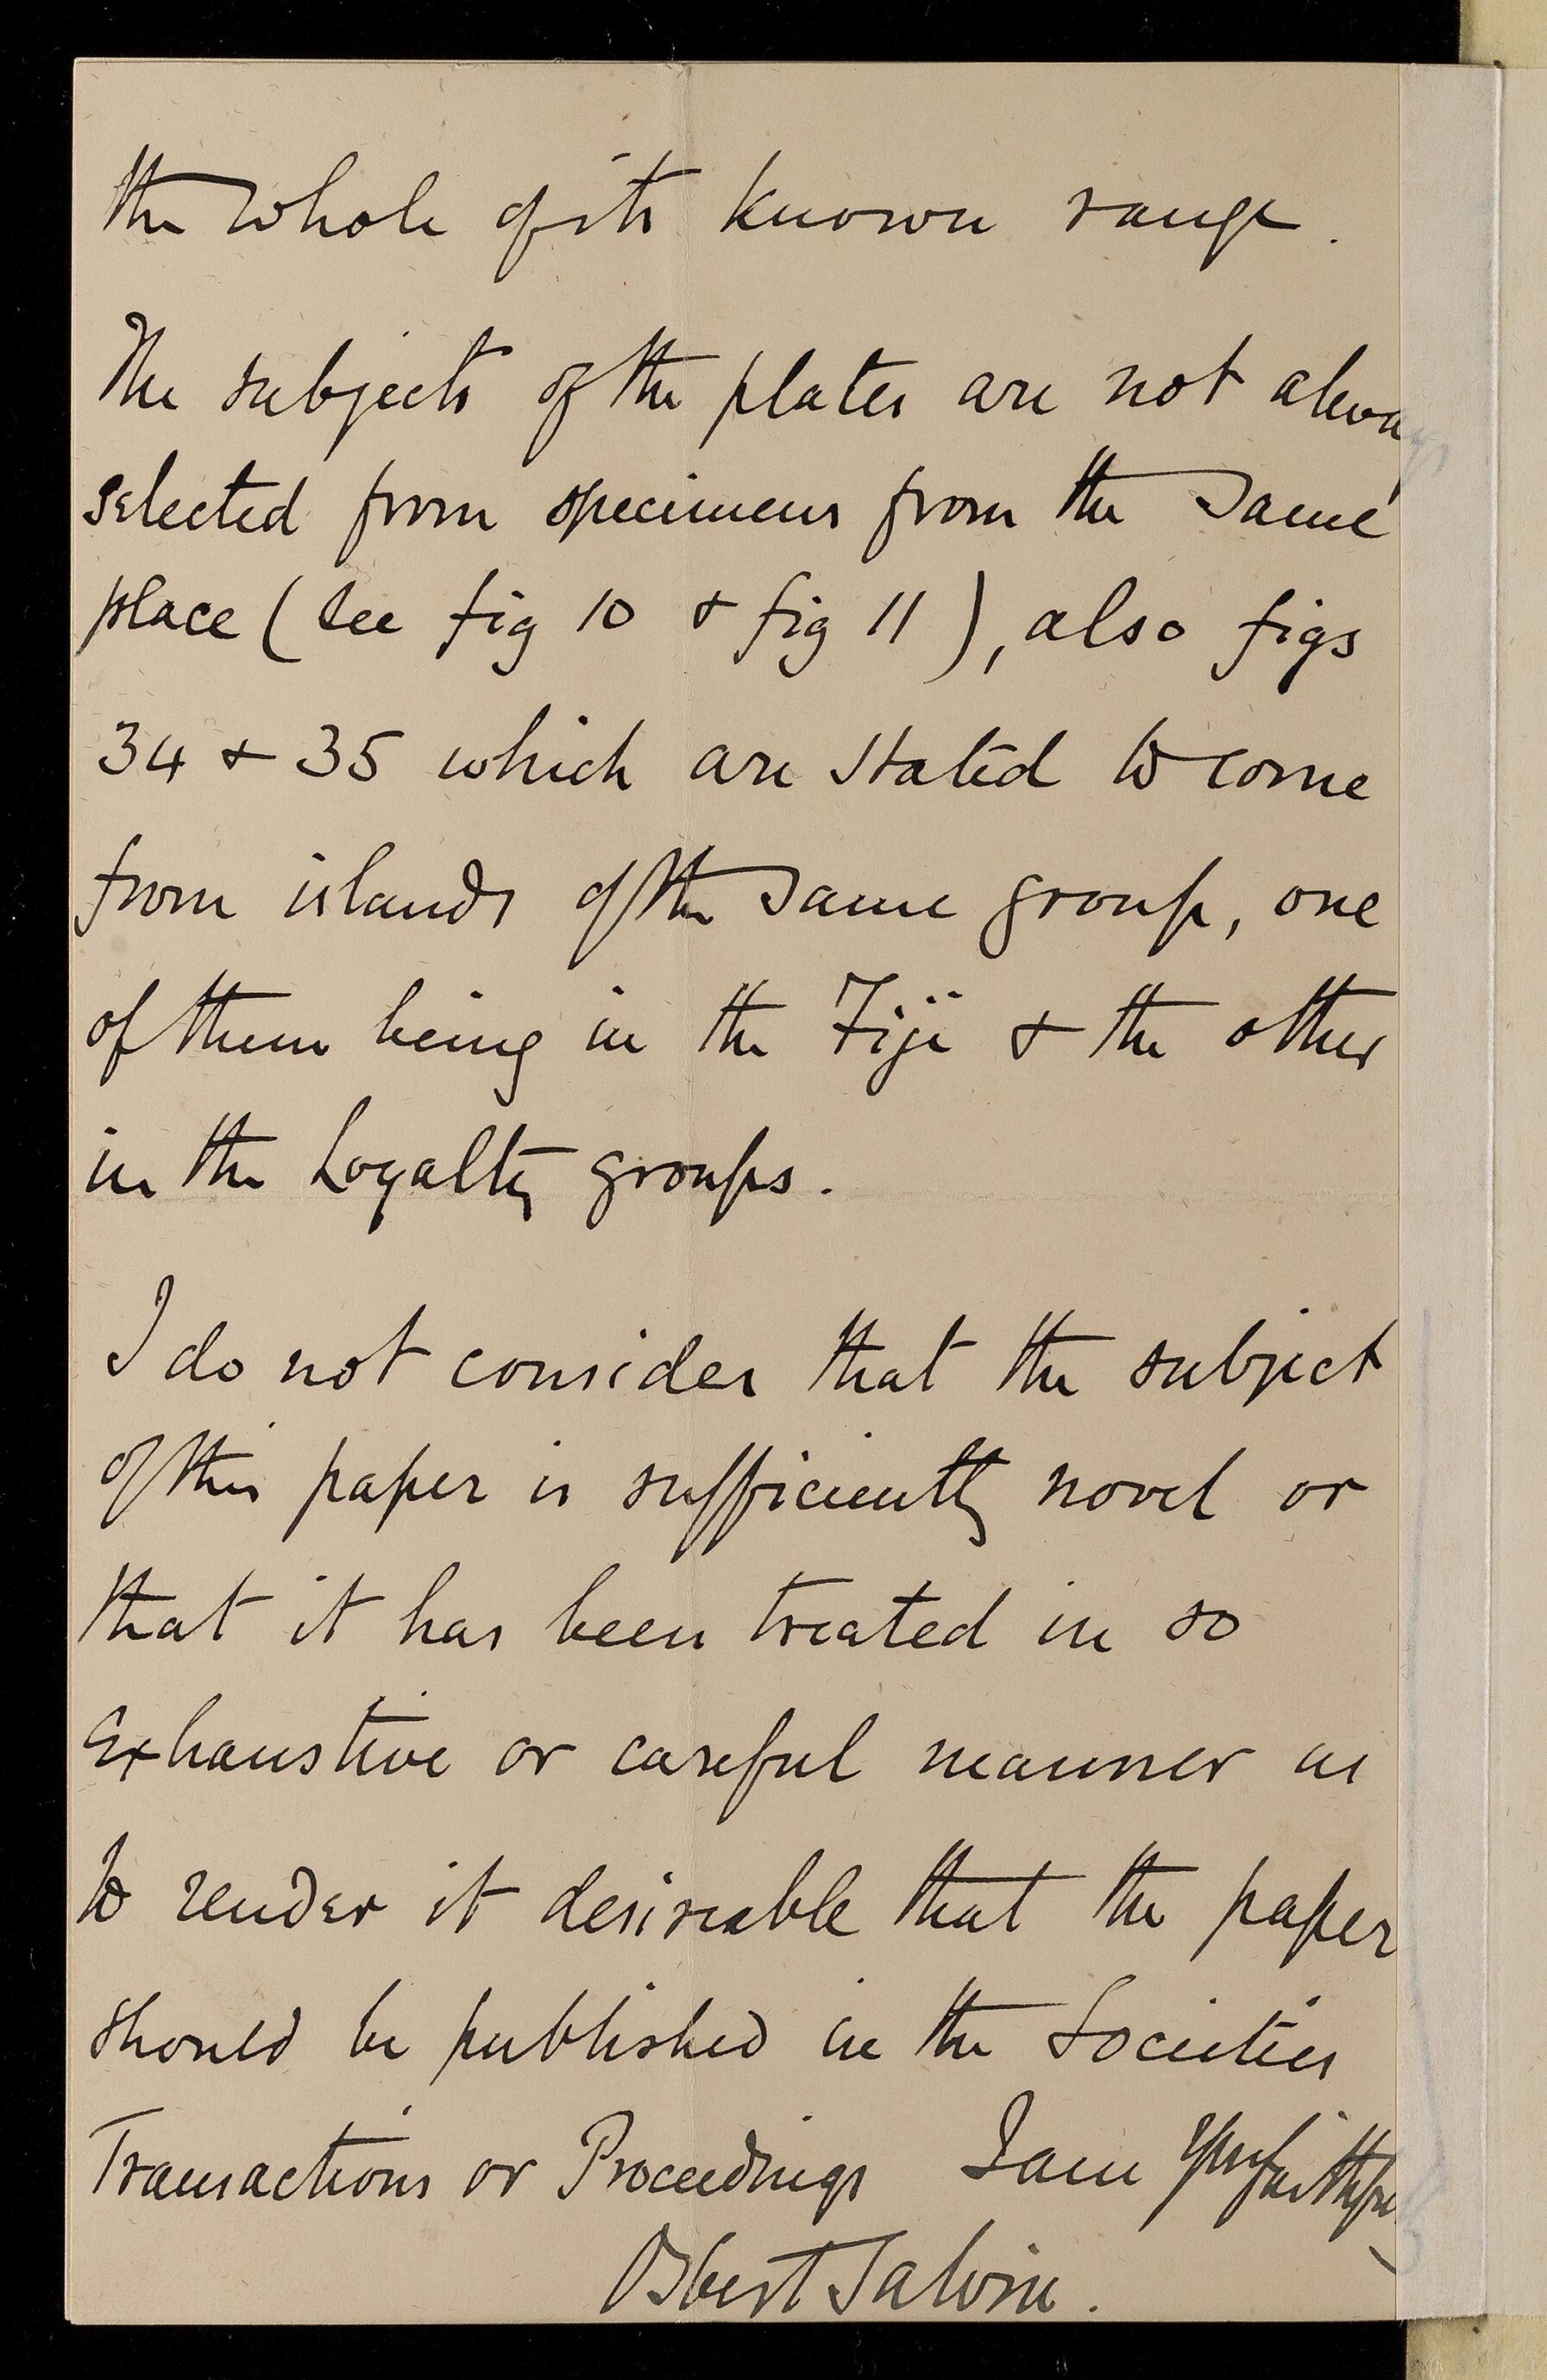 the whole of its known range.
The subjects of the plates are not always
selected from specimens from the same
place (see fig 10 & fig 11), also figs
34 & 35 which are stated to come
from islands of the same group, one
of them being in the Fiji & the other
in the Loyalty groups.
I do not consider that the subject
of this paper is sufficiently novel or
that it has been treated in so
exhaustive or careful manner as
to render it desireable that the paper
should be published in the Societies
Transactions or Proceedings I am Yrs faithfully
Osbert Salvin.